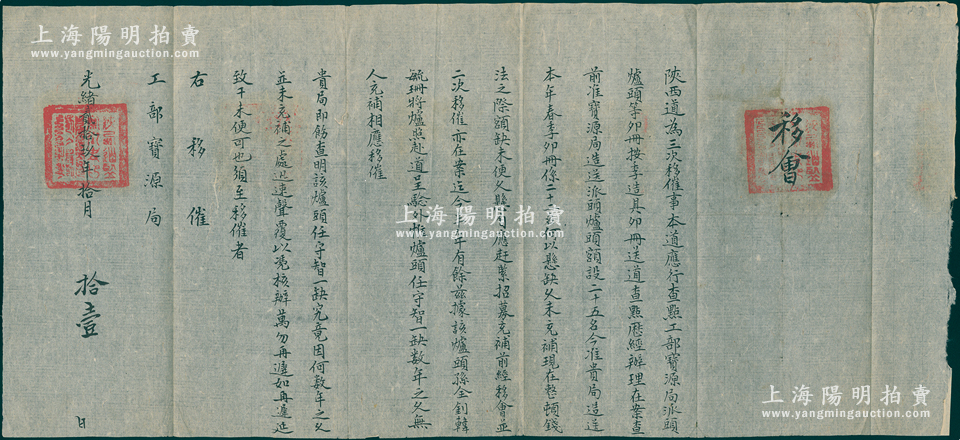 移會
陝西道為三次移催事本道應行查點工部寶源局派頭
爐頭等卯冊按季造具卯冊送道查點歷經辦理在案查
前准寶源局造送派頭爐頭額設二十五名今准貴局造送
本年春季卯冊係二十
以懸缺久未充補現在整頓錢
法之際額缺未便久懸
應赶緊招募充補前經移會並
二次移催亦在案迄今
年有餘茲據該爐頭孫全釗韓
毓珊將爐照赴道呈驗外
爐頭任守智一缺數年之久無
人充補相應移催
貴局即飭查明該爐頭任守智一缺究竟因何數年之久
並未充補之處迅速聲覆以憑核辦萬勿再遲如再遲延
致干未便可也須至移催者
右移催
工部寶源局
光緒貳拾玖年拾月
拾壹
日
上海陽明拍賣
www.yangmingauction.com
上海陽明拍賣
www.yangmingauction.com
上海陽明拍賣
www.yangmingauction.com
上海陽明拍賣
www.yangmingauction.com
上海陽明拍賣
www.yangmingauction.com